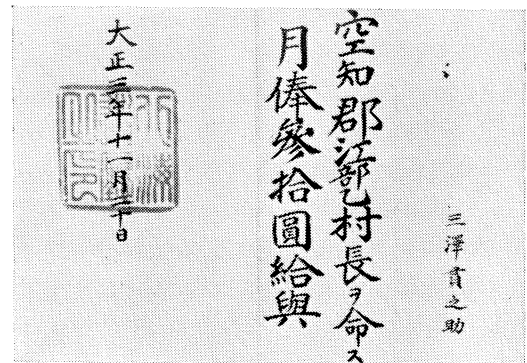 三澤貫之助
空知郡江部乙村長ヲ命ス
月俸參拾圓給與
大正三年十一月三十日